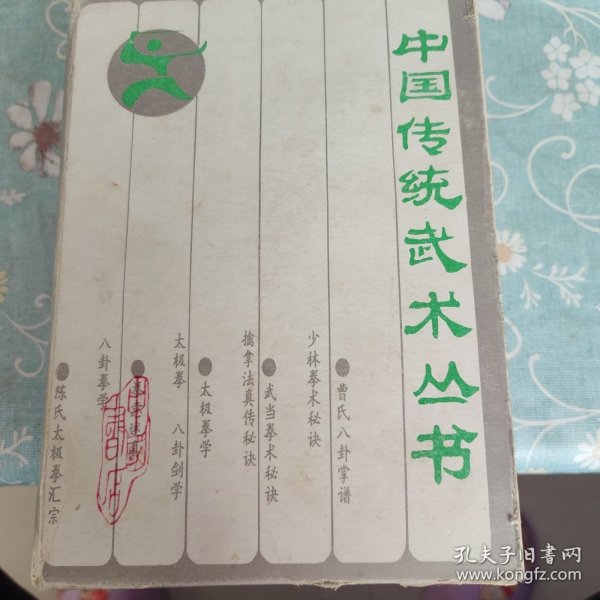 中国传统武术丛书
曹氏八卦掌谱
少林拳术秘诀
武当拳术秘诀
擒拿法真传秘诀
太极拳学
太极拳 八卦剑学
拳意述真
八卦拳学
陈氏太极拳汇宗
孔夫子旧书网
www.kongfz.com